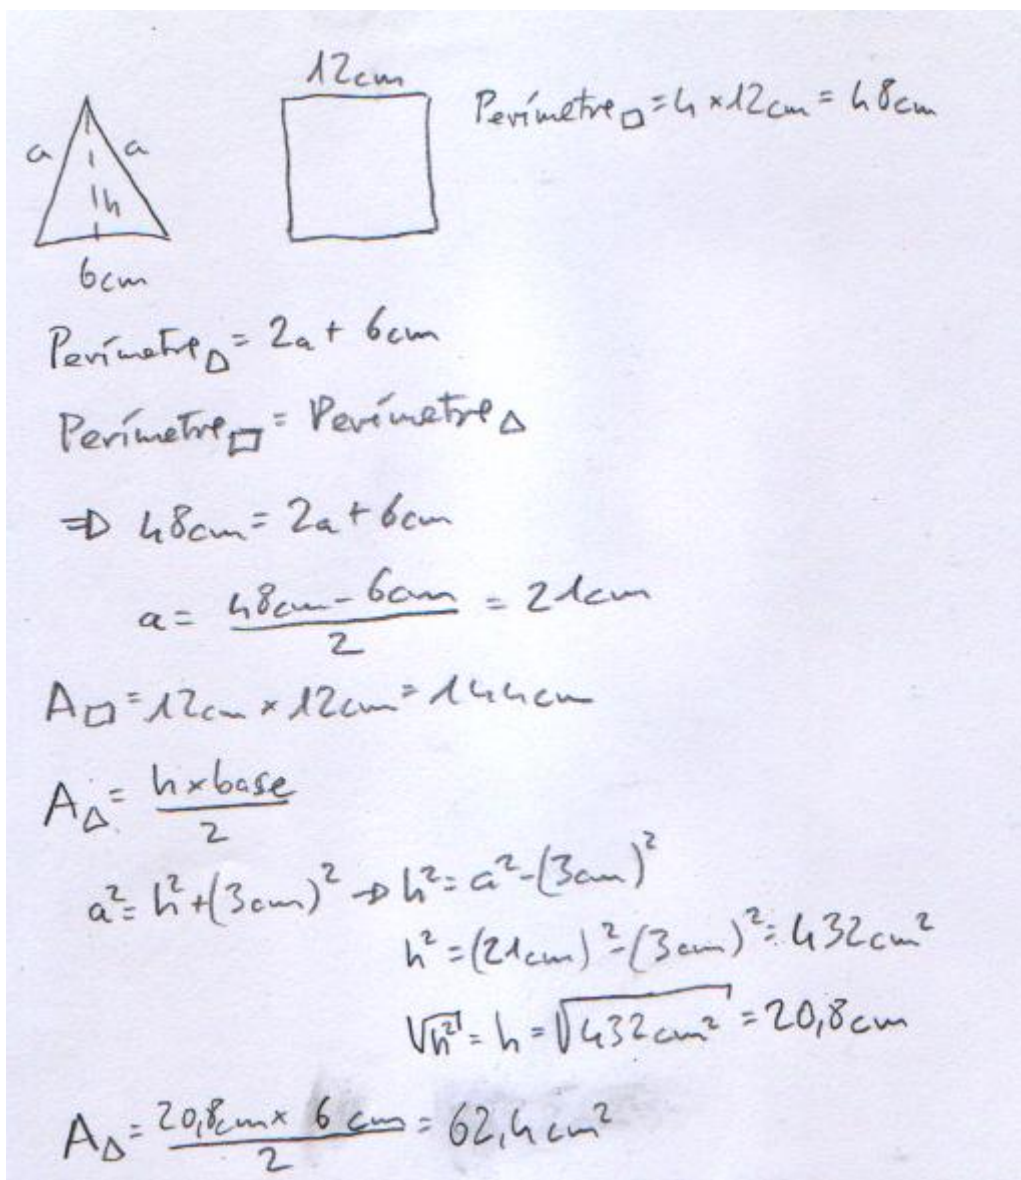 12cm
Perímetre□ = 4 × 12cm = 48cm
a a
h
6cm
Perímetre△ = 2a + 6cm
Perímetre□ = Perímetre△
⇒ 48cm = 2a + 6cm
a = (48cm - 6cm)/2 = 21cm
A□ = 12cm × 12cm = 144cm
A△ = (h × base)/2
a² = h² + (3cm)² → h² = a² - (3cm)²
h² = (21cm)² - (3cm)² = 432cm²
√h² = h = √432cm² = 20,8cm
A△ = (20,8cm × 6cm)/2 = 62,4cm²